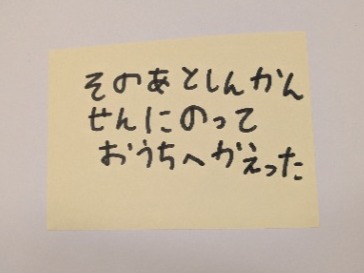 そのあとしんかん
せんにのって
おうちへかえった